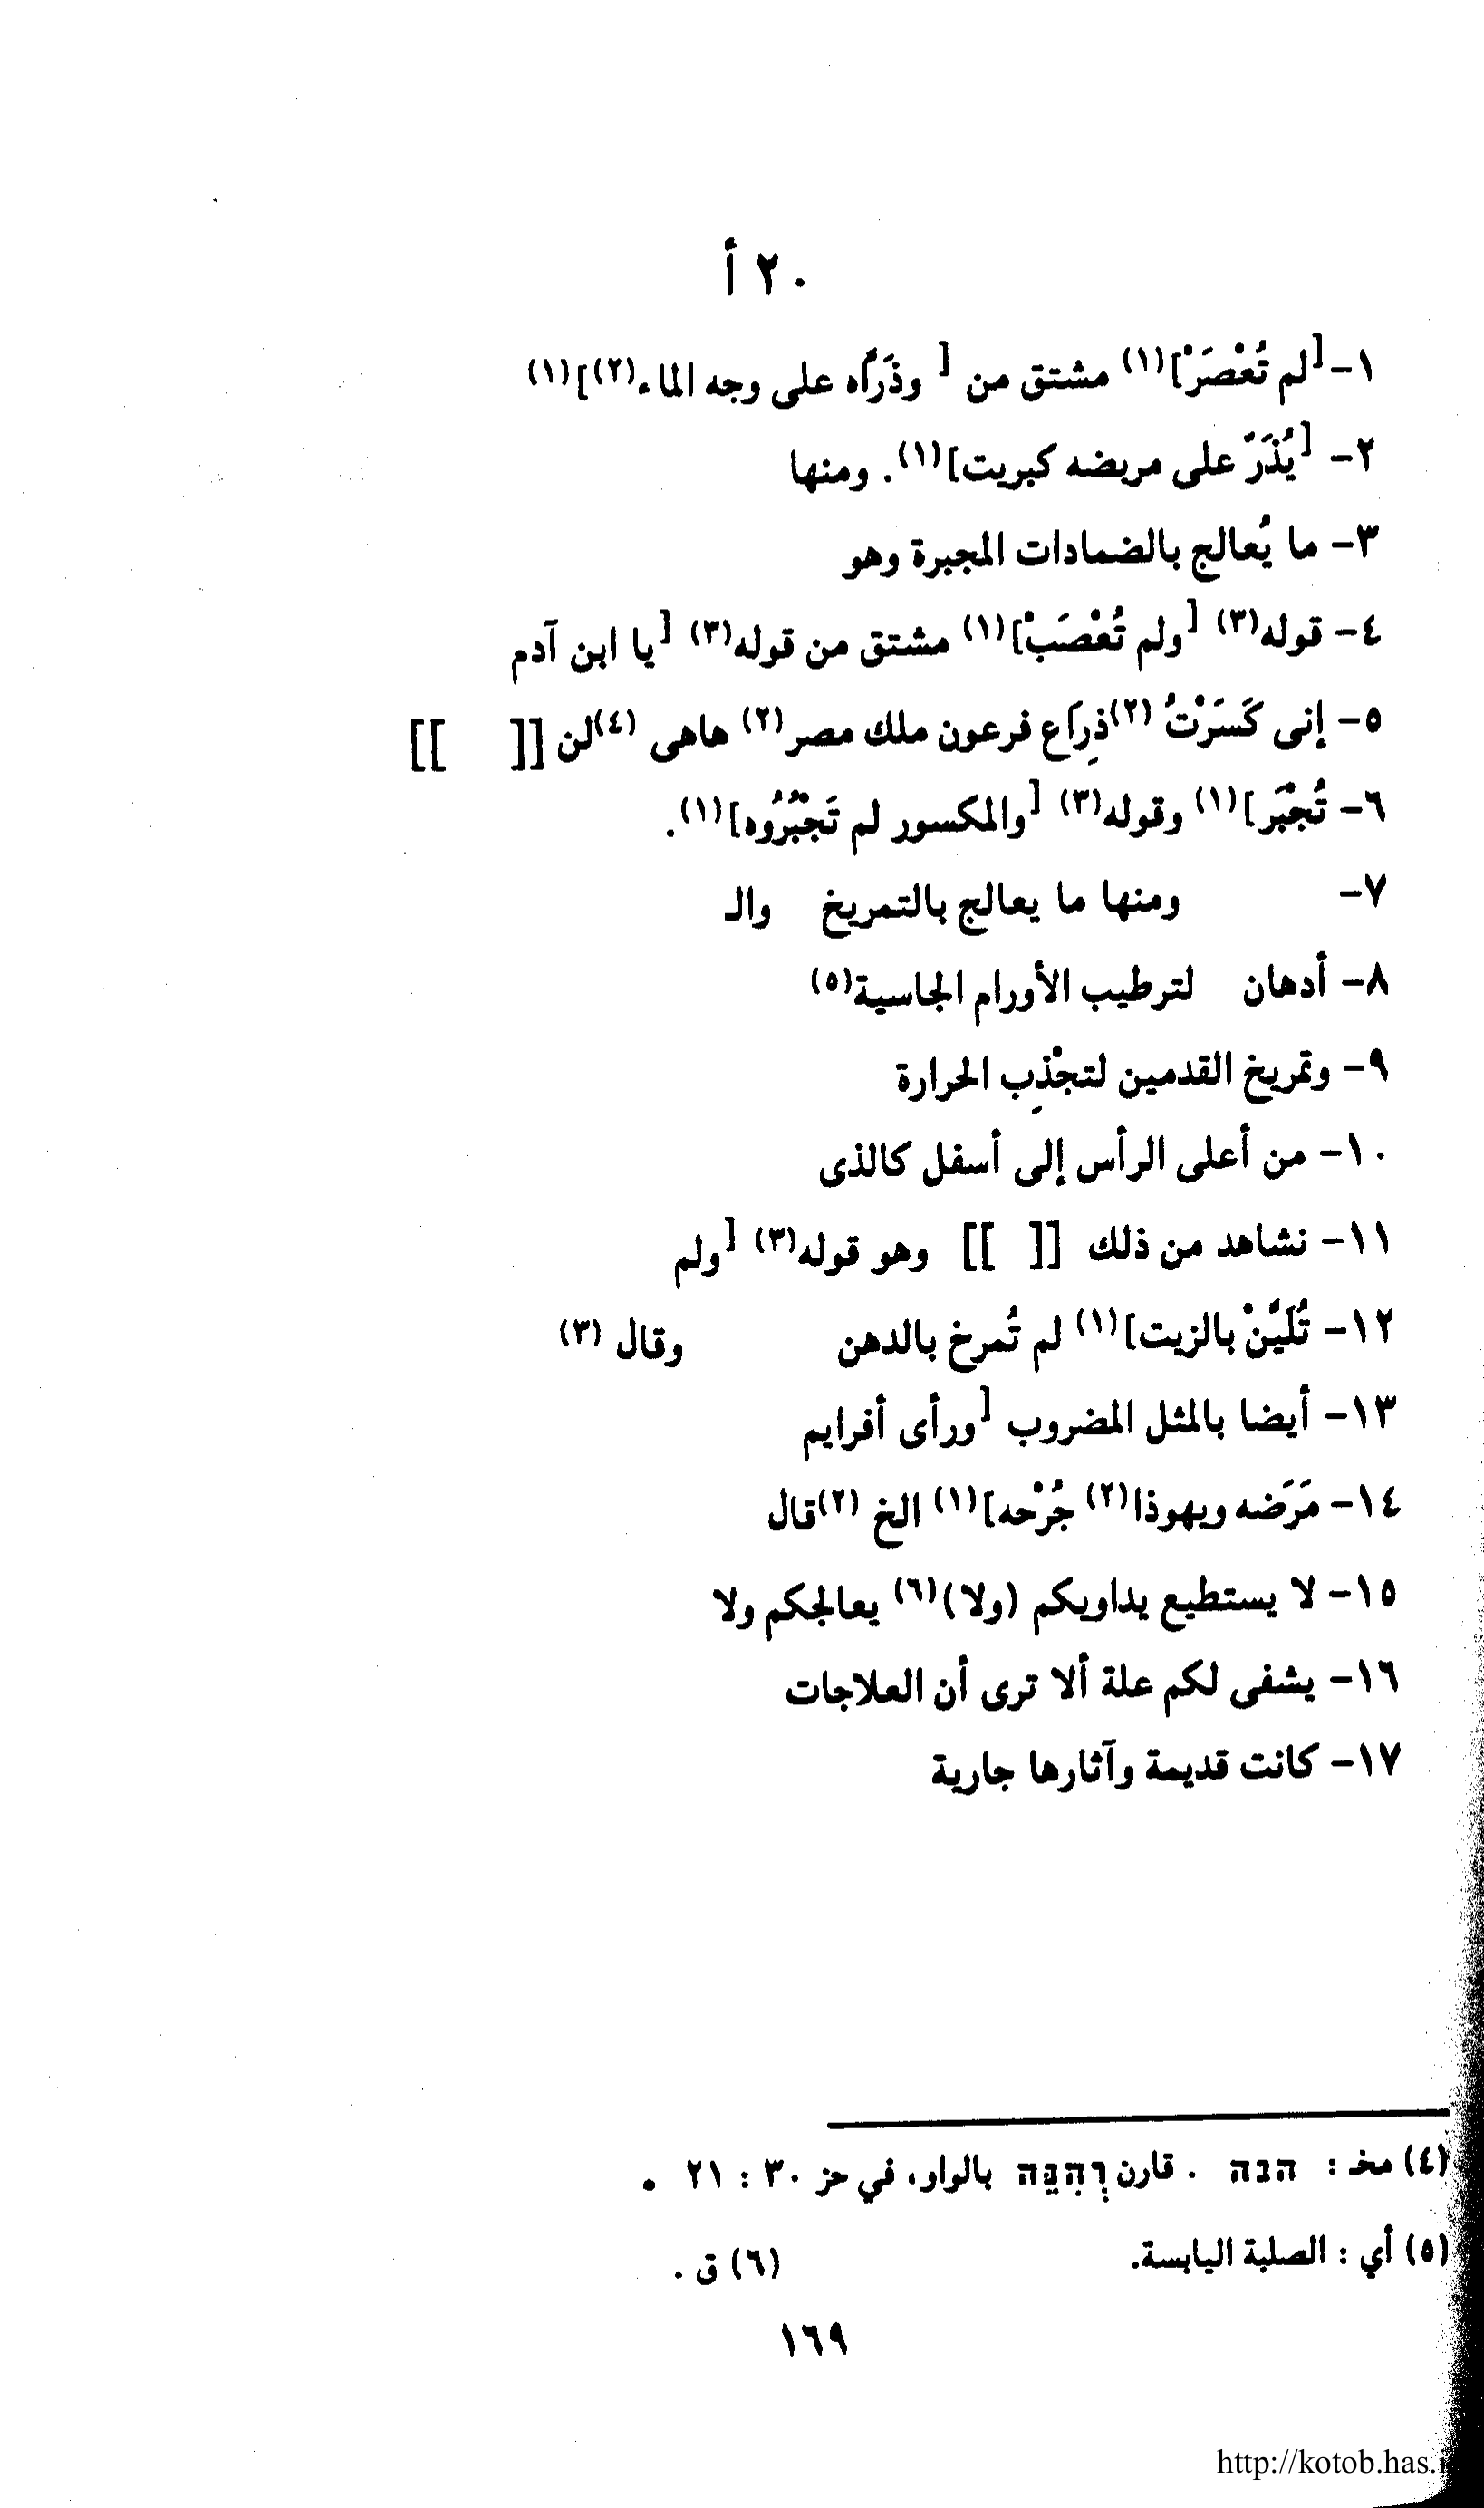 ٢٠ أ
١- [لم تُعْصَرْ](١) مشتق من [ وذَرَّاه على وجه الماء(٢)](١)
٢- [يُذَرّ على مريضه كبريت](١). ومنها
٣- ما يُعالج بالضمادات المجبرة وهو
٤- قوله(٣) [ولم تُعْصَبْ](١) مشتق من قوله(٣) [يا ابن آدم
٥- إنى كَسَرْتُ (٢)ذِرَاع فرعون ملك مصر(٢) هاهى (٤)لن [[ ]]
٦- تُجْبَر](١) وقوله(٣) [والمكسور لم تَجْبُرُوه](١).
٧- ومنها ما يعالج بالتمريخ والـ
٨- أدهان لترطيب الأورام الجاسية(٥)
٩- وتمريخ القدمين لتجْذِب الحرارة
١٠- من أعلى الرأس إلى أسفل كالذى
١١- نشاهد من ذلك [[ ]] وهو قوله(٣) [ولم
١٢- تُلَيَّنْ بالزيت](١) لم تُمرخ بالدهن وقال (٣)
١٣- أيضا بالمثل المضروب [ورأى أفرايم
١٤- مَرَضه ويهوذا(٢) جُرْحه](١) الخ (٢)قال
١٥- لا يستطيع يداويكم (ولا)(٦) يعالجكم ولا
١٦- يشفى لكم علة ألا ترى أن العلاجات
١٧- كانت قديمة وآثارها جارية
(٤) مخـ : הנה . قارن וְהִנֵּה بالواو، في حز ٣٠ : ٢١ .
(٥) أي : الصلبة اليابسة. (٦) ق .
١٦٩
http://kotob.has.